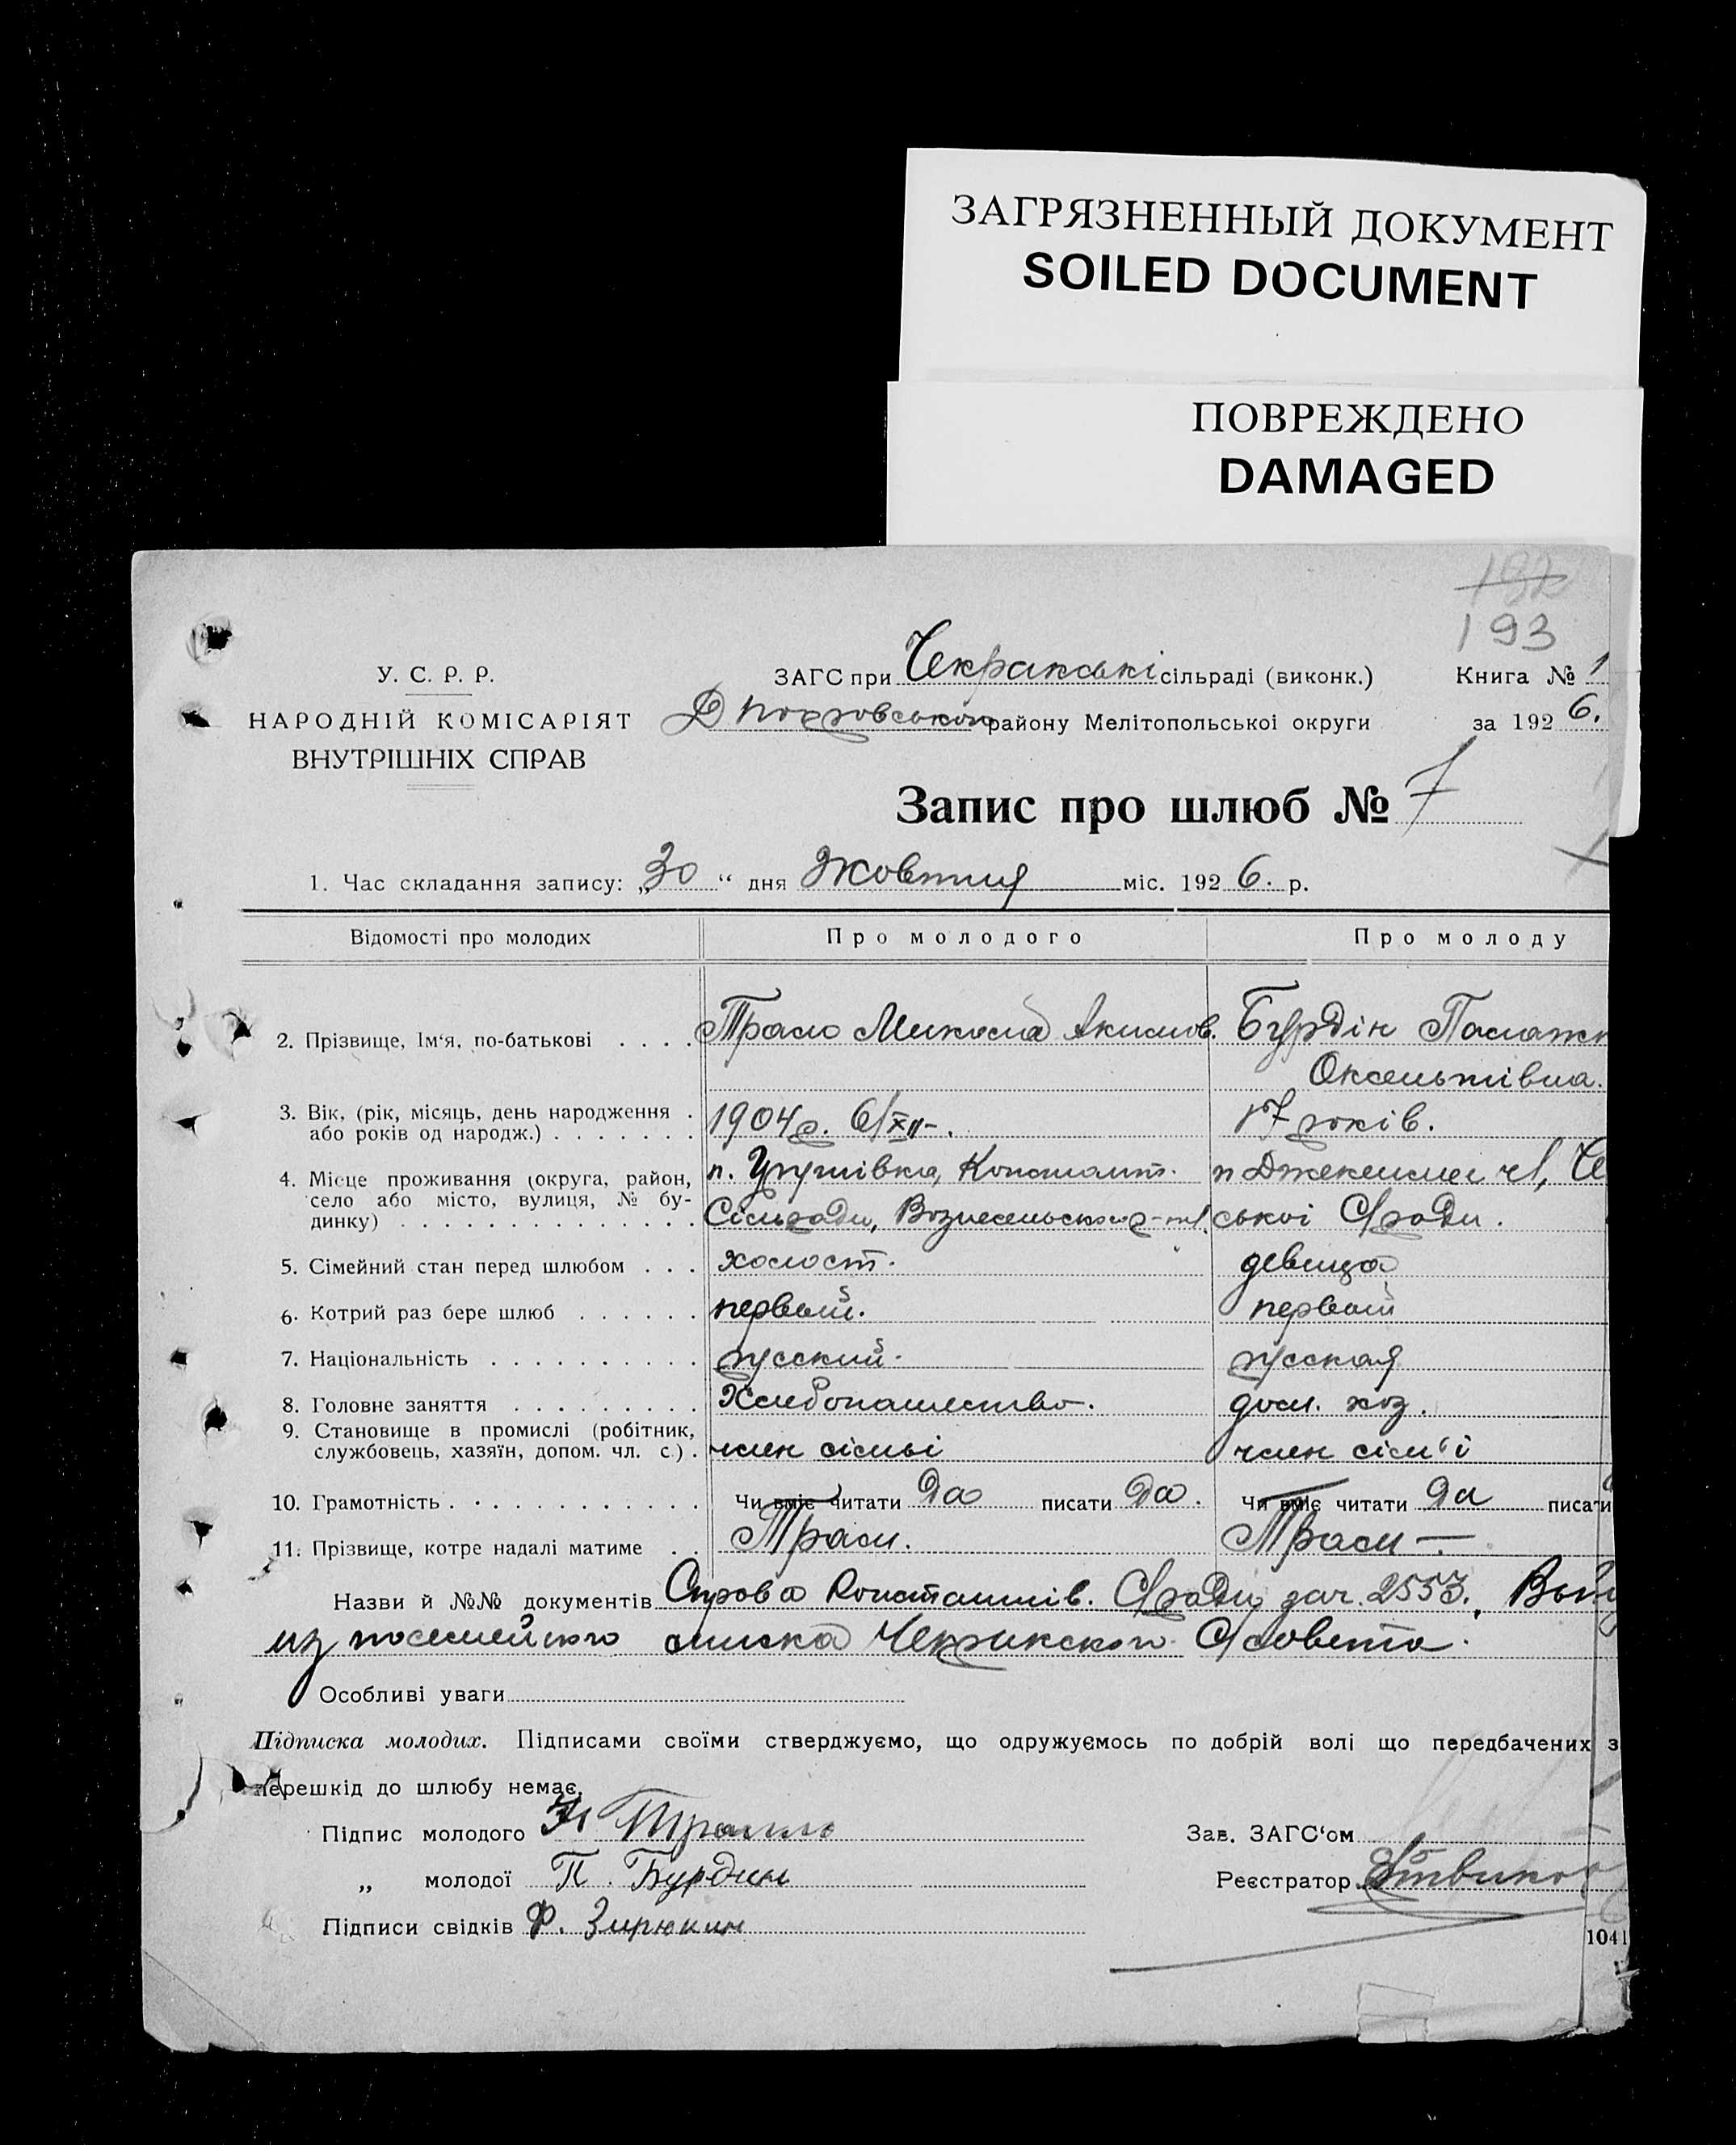 ЗАГРЯЗНЕННЫЙ ДОКУМЕНТ
SOILED DOCUMENT
ПОВРЕЖДЕНО
DAMAGED
192
193
У. С. Р. Р.
НАРОДНІЙ КОМІСАРІЯТ
ВНУТРІШНІХ СПРАВ
ЗАГС при Чекракські сільраді (виконк.) Книга № 1
Д Покровської району Мелітопольськоі округи за 1926.
Запис про шлюб № 7
1. Час складання запису: „30“ дня Жовтня міс. 1926. р.
Відомості про молодих Про молодого Про молоду
2. Прізвище, Ім‘я, по-батькові Микола Акимов. Бурдін Палажк
3. Вік, (рік, місяць, день народження або років од народж.) 1904г. 6/XII-. 17 років.
4. Місце проживання (округа, район, село або місто, вулиця, № будинку) п. Константи.
Сільради, Вознесенського р-ну. ської С/ради.
5. Сімейний стан перед шлюбом холост. девица
6. Котрий раз бере шлюб первый. первый
7. Національність русский. русская
8. Головне заняття Хлебопашество. дом. хоз.
9. Становище в промислі (робітник, службовець, хазяїн, допом. чл. с.) член сімьі член сім‘ї
10. Грамотність Чи вміє читати да писати да. Чи вміє читати да писати
11. Прізвище, котре надалі матиме
Назви й №№ документів Константинів. С/ради зач. 2553.,
из посемейного списка Чекракского С/совета.
Особливі уваги
Підписка молодих. Підписами своїми стверджуємо, що одружуємось по добрій волі що передбачених з
перешкід до шлюбу немає.
Підпис молодого
Зав. ЗАГС‘ом
„ молодої П. Бурдин
Реєстратор
Підписи свідків Ф. Зирюкин
1041